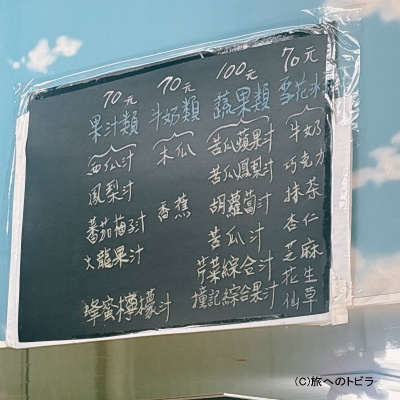 70元
果汁類
西瓜汁
鳳梨汁
番茄梅子汁
火龍果汁
蜂蜜檸檬汁
70元
牛奶類
木瓜
香蕉
100元
蔬果類
苦瓜蘋果汁
苦瓜鳳梨汁
胡蘿蔔汁
苦瓜汁
芹菜綜合汁
撞記綜合果汁
70元
雪花冰
牛奶
巧克力
抹茶
杏仁
芝麻
花生
仙草
(C)旅へのトビラ